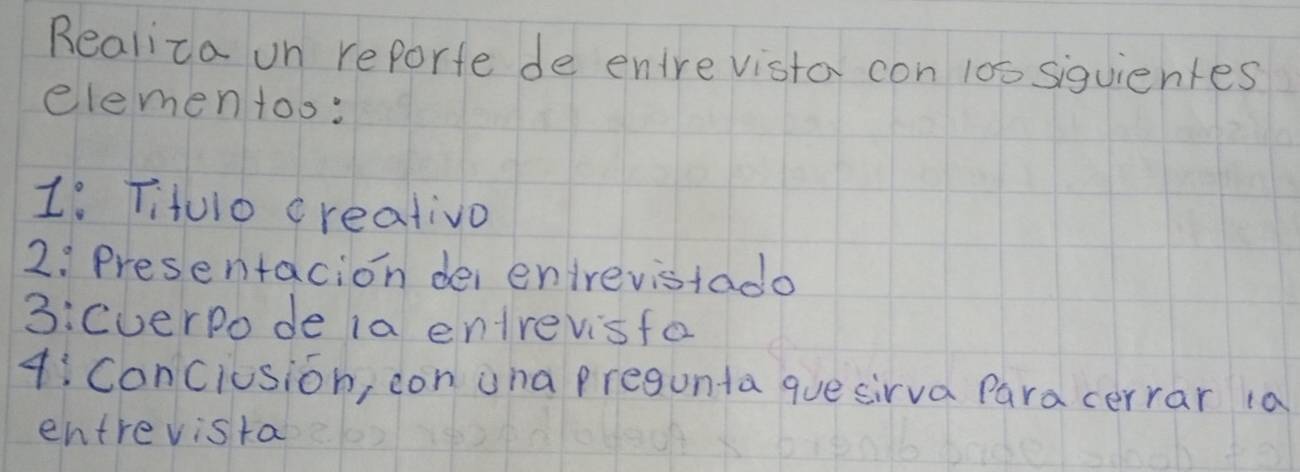 Realiza un reporte de entrevista con los siguientes
elementos:
1: Titulo creativo
2: Presentación del entrevistado
3: Cuerpo de la entrevista
4: Conclusión, con una pregunta que sirva para cerrar la
entrevista